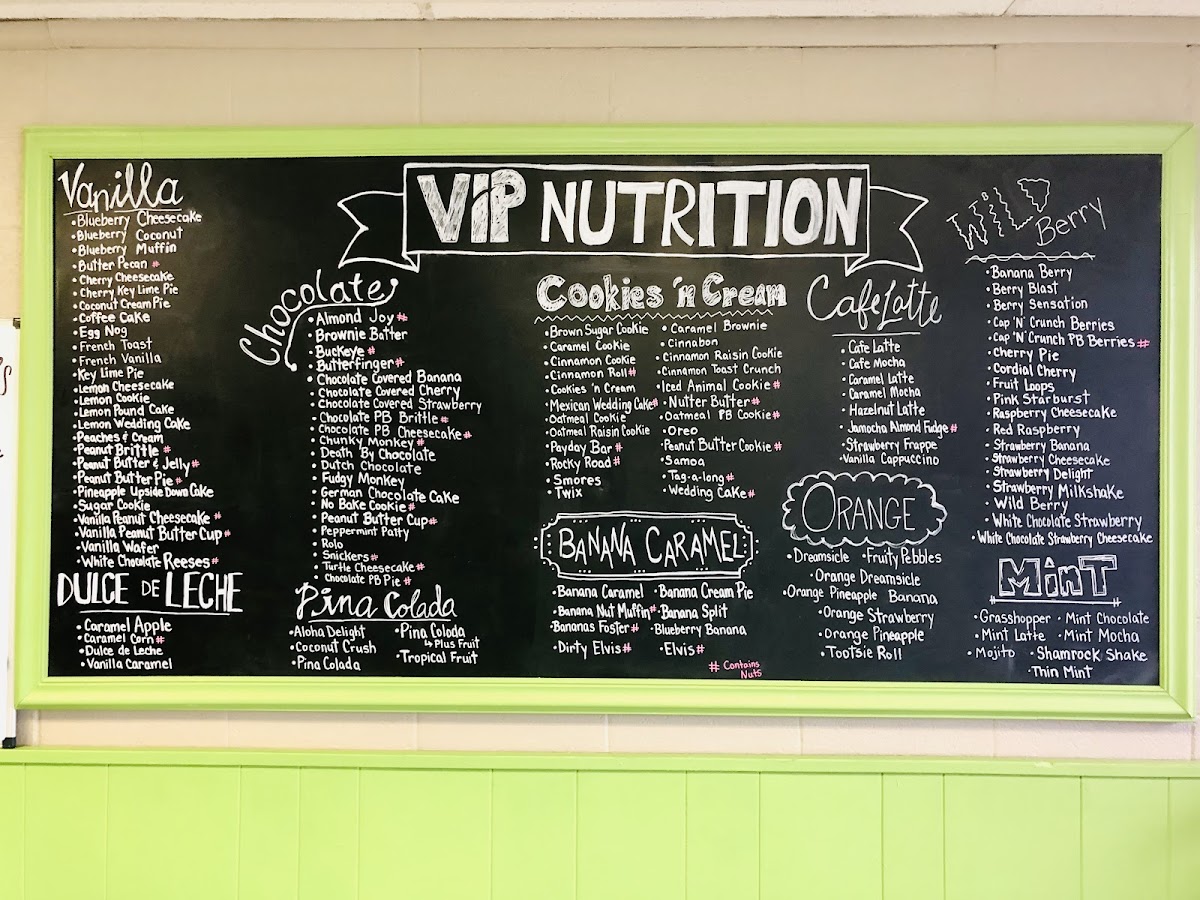 VIP NUTRITION
Vanilla
• Blueberry Cheesecake
• Blueberry Coconut
• Blueberry Muffin
• Butter Pecan #
• Cherry Cheesecake
• Cherry Key Lime Pie
• Coconut Cream Pie
• Coffee Cake
• Egg Nog
• French Toast
• French Vanilla
• Key Lime Pie
• Lemon Cheesecake
• Lemon Cookie
• Lemon Pound Cake
• Lemon Wedding Cake
• Peaches & Cream
• Peanut Brittle #
• Peanut Butter & Jelly #
• Peanut Butter Pie #
• Pineapple Upside Down Cake
• Sugar Cookie
• Vanilla Peanut Cheesecake #
• Vanilla Peanut Butter Cup #
• Vanilla Wafer
• White Chocolate Reeses #
DULCE DE LECHE
• Caramel Apple
• Caramel Corn #
• Dulce de Leche
• Vanilla Caramel
Chocolate
• Almond Joy #
• Brownie Batter
• Buckeye #
• Butterfinger #
• Chocolate Covered Banana
• Chocolate Covered Cherry
• Chocolate Covered Strawberry
• Chocolate PB Brittle #
• Chocolate PB Cheesecake #
• Chunky Monkey #
• Death By Chocolate
• Dutch Chocolate
• Fudgy Monkey
• German Chocolate Cake
• No Bake Cookie #
• Peanut Butter Cup #
• Peppermint Patty
• Rolo
• Snickers #
• Turtle Cheesecake #
• Chocolate PB Pie #
Pina Colada
• Aloha Delight
• Coconut Crush
• Pina Colada
• Pina Colada
↳ Plus Fruit
• Tropical Fruit
Cookies 'n Cream
• Brown Sugar Cookie
• Caramel Cookie
• Cinnamon Cookie
• Cinnamon Roll #
• Cookies 'n Cream
• Mexican Wedding Cake #
• Oatmeal Cookie
• Oatmeal Raisin Cookie
• Payday Bar #
• Rocky Road #
• Smores
• Twix
• Caramel Brownie
• Cinnabon
• Cinnamon Raisin Cookie
• Cinnamon Toast Crunch
• Iced Animal Cookie #
• Nutter Butter #
• Oatmeal PB Cookie #
• Oreo
• Peanut Butter Cookie #
• Samoa
• Tag-a-long #
• Wedding Cake #
BANANA CARAMEL
• Banana Caramel
• Banana Nut Muffin #
• Bananas Foster #
• Dirty Elvis #
• Banana Cream Pie
• Banana Split
• Blueberry Banana
• Elvis #
# Contains
Nuts
Cafe Latte
• Cafe Latte
• Cafe Mocha
• Caramel Latte
• Caramel Mocha
• Hazelnut Latte
• Jamocha Almond Fudge #
• Strawberry Frappe
• Vanilla Cappuccino
ORANGE
• Dreamsicle • Fruity Pebbles
• Orange Dreamsicle
• Orange Pineapple Banana
• Orange Strawberry
• Orange Pineapple
• Tootsie Roll
WILD
Berry
• Banana Berry
• Berry Blast
• Berry Sensation
• Cap 'N' Crunch Berries
• Cap 'N' Crunch PB Berries #
• Cherry Pie
• Cordial Cherry
• Fruit Loops
• Pink Starburst
• Raspberry Cheesecake
• Red Raspberry
• Strawberry Banana
• Strawberry Cheesecake
• Strawberry Delight
• Strawberry Milkshake
• Wild Berry
• White Chocolate Strawberry
• White Chocolate Strawberry Cheesecake
MinT
• Grasshopper • Mint Chocolate
• Mint Latte • Mint Mocha
• Mojito • Shamrock Shake
• Thin Mint